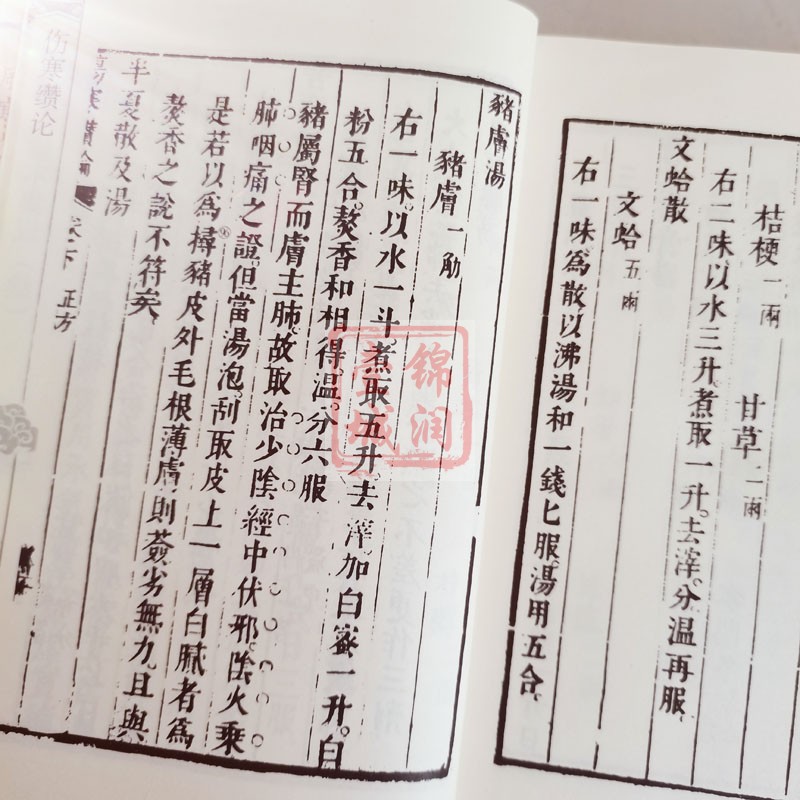 桔梗一兩 甘草二兩
右二味以水三升煮取一升去滓分温再服
文蛤散
文蛤五兩
右一味為散以沸湯和一錢匕服湯用五合
豬膚湯
豬膚一觔
右一味以水一斗煮取五升去滓加白蜜一升白
粉五合熬香和相得温分六服
豬屬腎而膚主肺故取治少陰經中伏邪陰火乘
肺咽痛之證但當湯泡刮取皮上一層白膩者為
是若以為撏豬皮外毛根薄膚則簽劣無九且與
熬香之說不符矣
半夏散及湯
卷下 正方
伤寒缵论
锦润